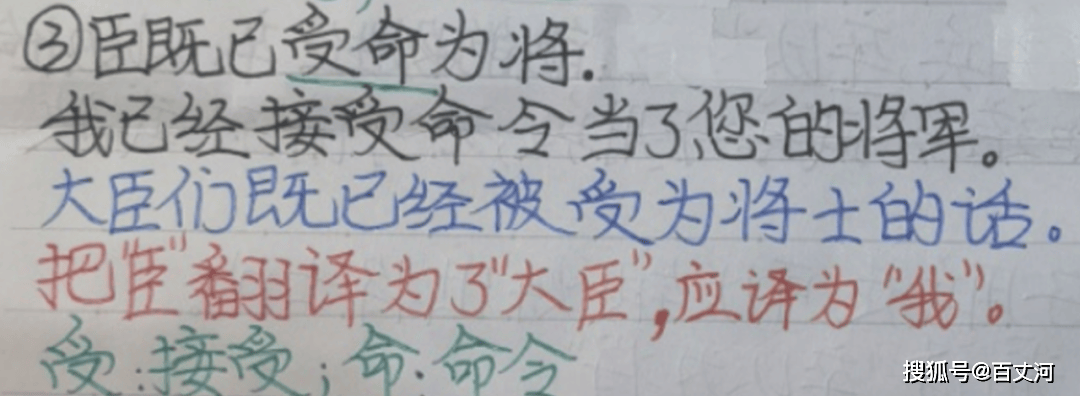 ③臣既已受命为将.
我已经接受命令当了您的将军。
大臣们既已经被受为将士的话。
把“臣”翻译为了“大臣”,应译为“我”。
受:接受;命:命令
搜狐号@百丈河